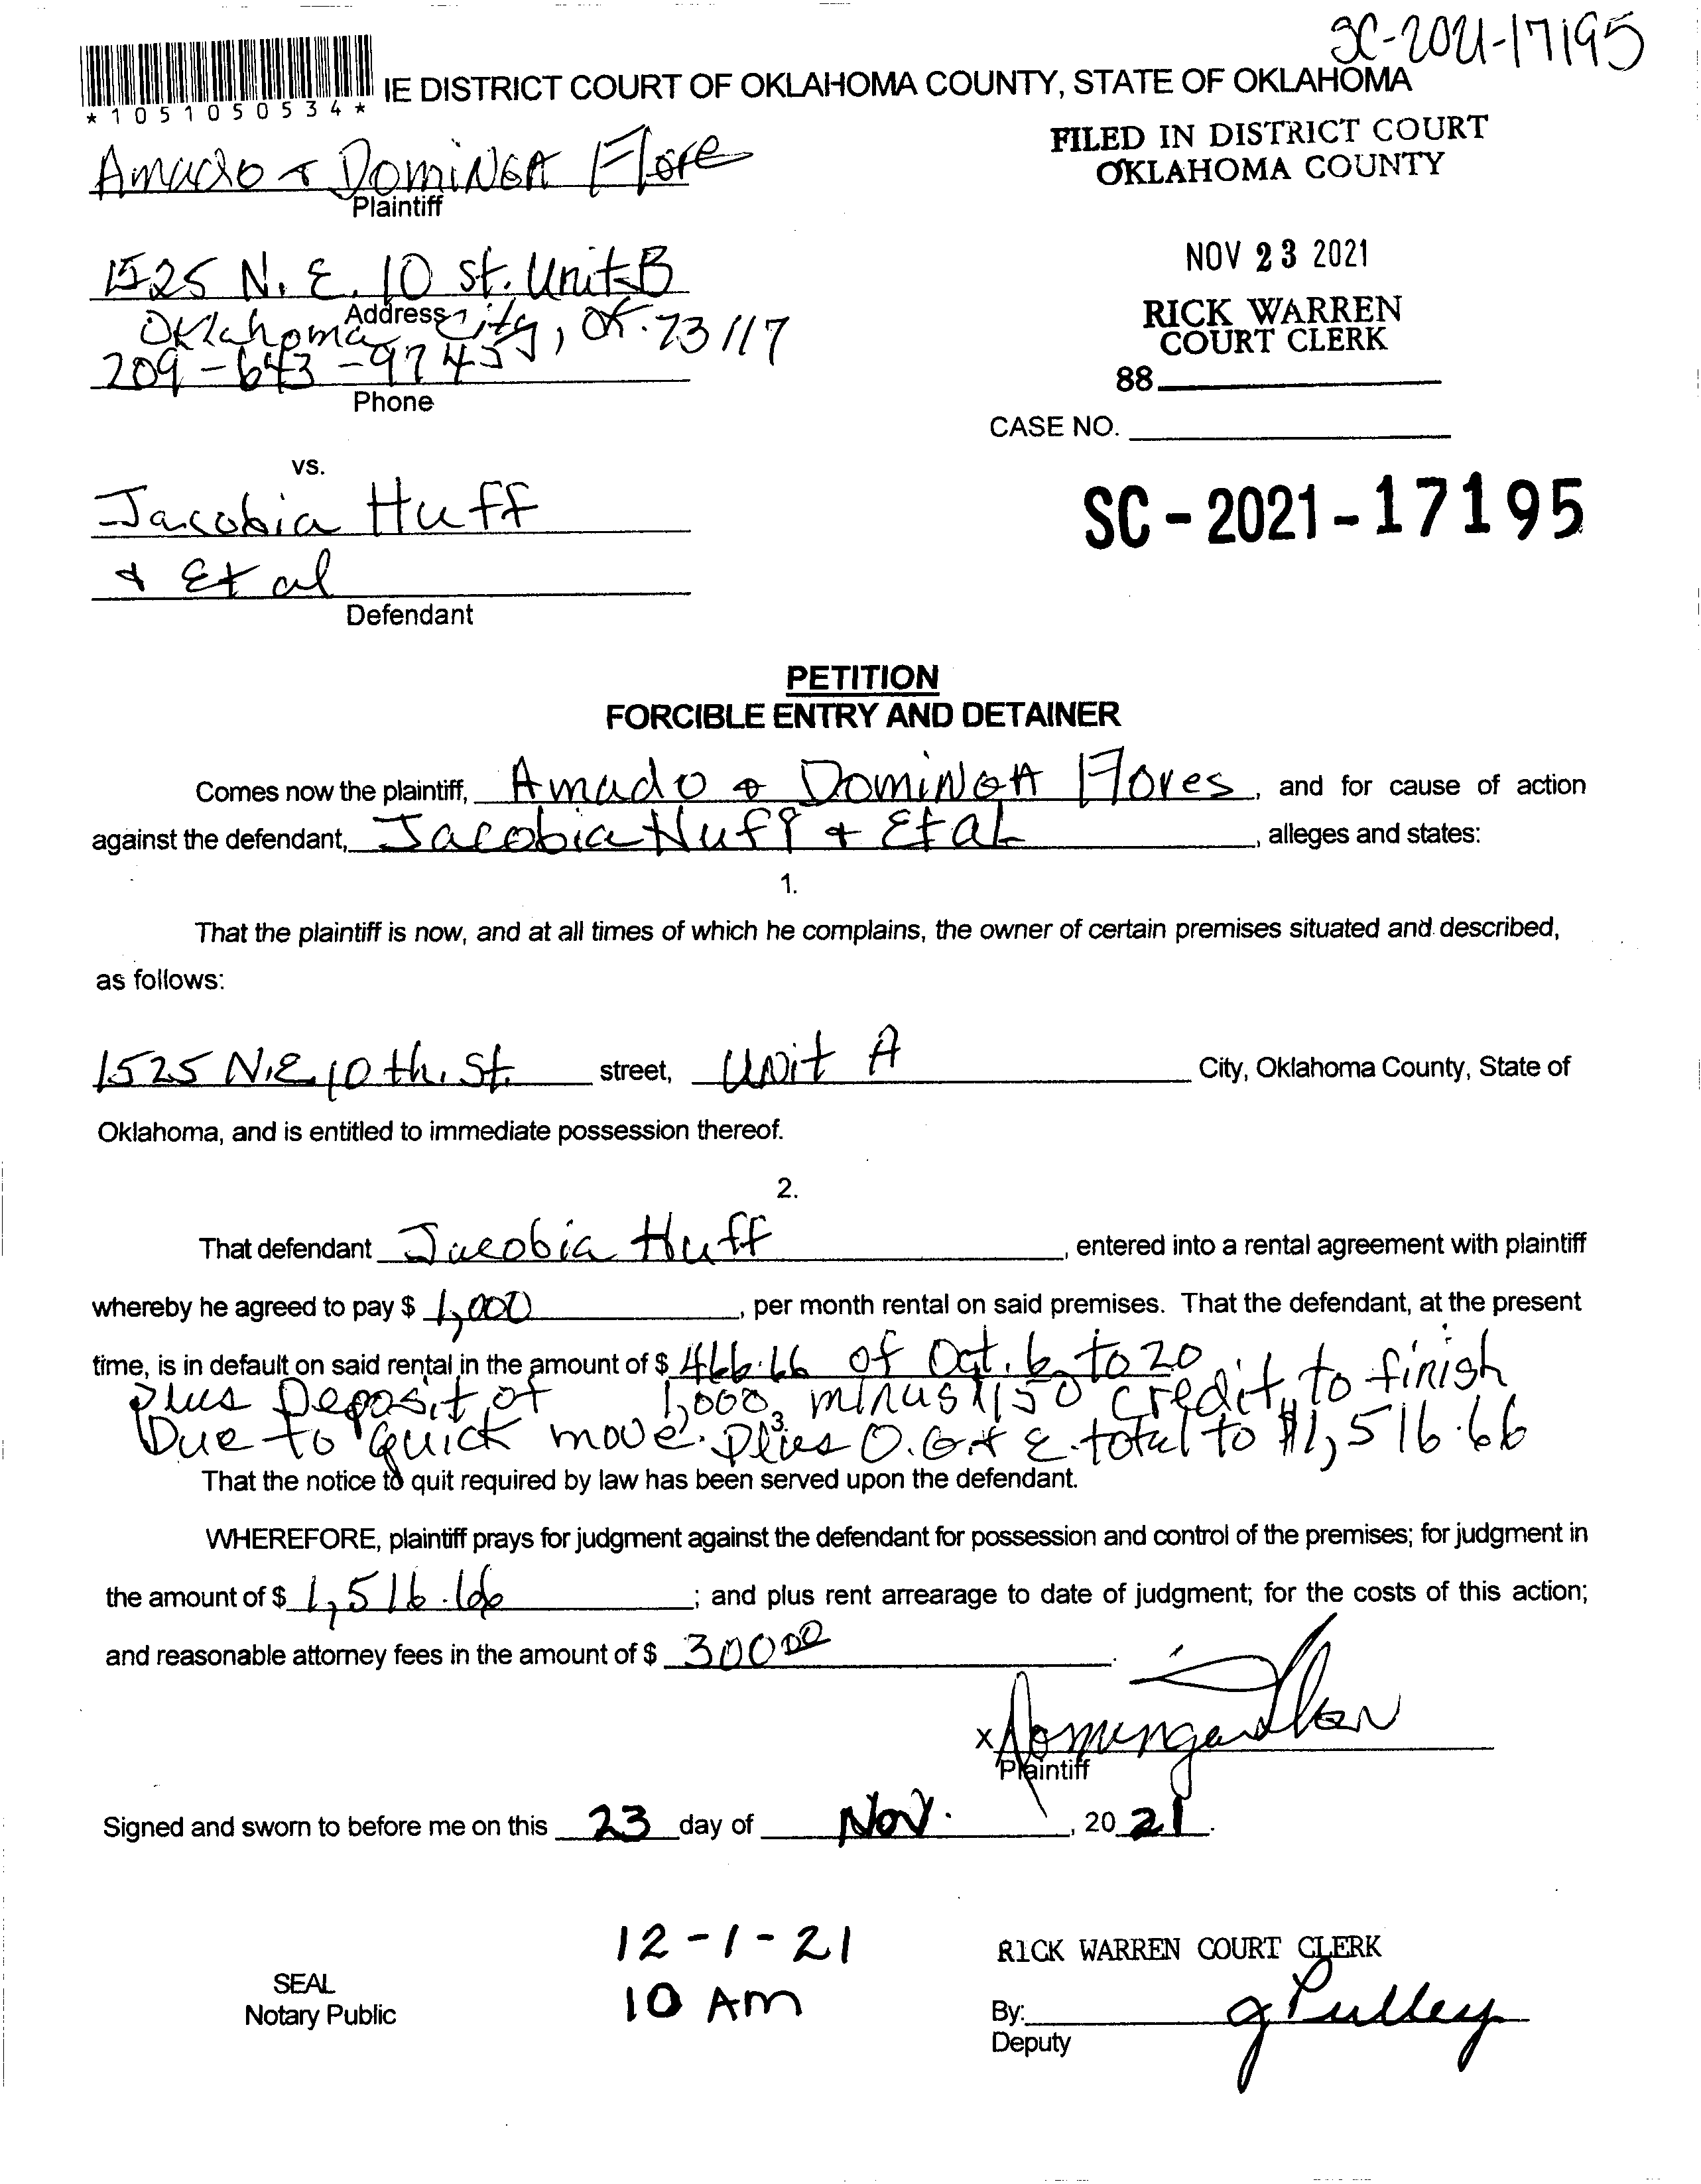 SC-2021-17195
IE DISTRICT COURT OF OKLAHOMA COUNTY, STATE OF OKLAHOMA
*1051050534*
FILED IN DISTRICT COURT
OKLAHOMA COUNTY
Amado & Dominga Flore
Plaintiff
NOV 23 2021
1525 N. E. 10 St. Unit B
Address
Oklahoma City, OK. 73117
RICK WARREN
COURT CLERK
209-643-9745
Phone
88
CASE NO.
vs.
Jacobia Huff
SC-2021-17195
& Et al
Defendant
PETITION
FORCIBLE ENTRY AND DETAINER
Comes now the plaintiff, Amado & Dominga Flores, and for cause of action
against the defendant, Jacobia Huff & Et al, alleges and states:
1.
That the plaintiff is now, and at all times of which he complains, the owner of certain premises situated and described,
as follows:
1525 N.E. 10th. St. street, Unit A City, Oklahoma County, State of
Oklahoma, and is entitled to immediate possession thereof.
2.
That defendant Jacobia Huff, entered into a rental agreement with plaintiff
whereby he agreed to pay $ 1,000, per month rental on said premises. That the defendant, at the present
time, is in default on said rental in the amount of $ 466.66 of Oct. 6 to 20
plus Deposit of 1,000 minus 150 credit, to finish
Due to quick move. Plus O.G & E. total to $1,516.66
3.
That the notice to quit required by law has been served upon the defendant.
WHEREFORE, plaintiff prays for judgment against the defendant for possession and control of the premises; for judgment in
the amount of $ 1,516.66; and plus rent arrearage to date of judgment; for the costs of this action;
and reasonable attorney fees in the amount of $ 300 00.
x Dominga Flores
Plaintiff
Signed and sworn to before me on this 23 day of Nov., 20 21.
12-1-21
10 AM
SEAL
Notary Public
RICK WARREN COURT CLERK
By: g Pulley
Deputy